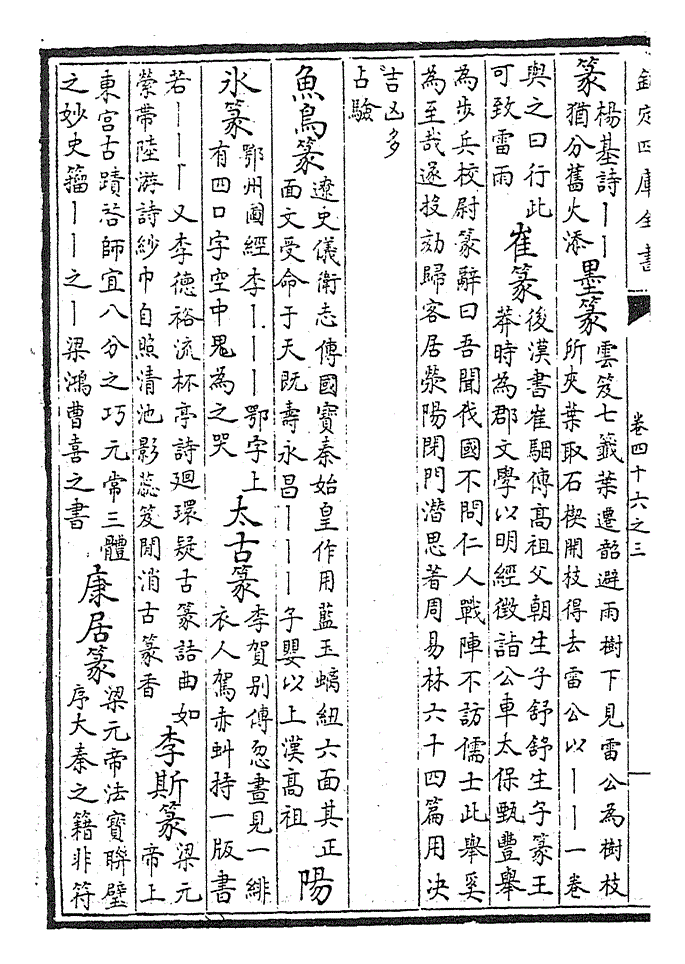 欽定四庫全書
卷四十六之三
篆
楊基詩丨丨
猶分舊火添
墨篆
雲笈七籤葉遷韶避雨樹下見雷公為樹枝
所夾葉取石楔開枝得去雷公以丨丨一卷
與之曰行此
可致雷雨
崔篆
後漢書崔駰傳高祖父朝生子舒舒生子篆王
莽時為郡文學以明經徵詣公車太保甄豐舉
為步兵校尉篆辭曰吾聞伐國不問仁人戰陣不訪儒士此舉奚
為至哉遂投劾歸客居滎陽閉門潛思著周易林六十四篇用决
吉凶多
占驗
魚鳥篆
遼史儀衛志傳國寶秦始皇作用藍玉螭紐六面其正
面文受命于天既壽永昌丨丨丨子嬰以上漢高祖
陽
氷篆
鄂州圖經李丨丨丨鄂字上
有四口字空中鬼為之哭
太古篆
李賀别傳忽晝見一緋
衣人駕赤虬持一版書
若丨丨丨又李德裕流杯亭詩廻環疑古篆詰曲如
縈帶陸游詩紗巾自照清池影蕊笈閒消古篆香
李斯篆
梁元
帝上
東宫古蹟啓師宜八分之巧元常三體
之妙史籀丨丨之丨梁鴻曹喜之書
康居篆
梁元帝法寶聯璧
序大秦之籍非符